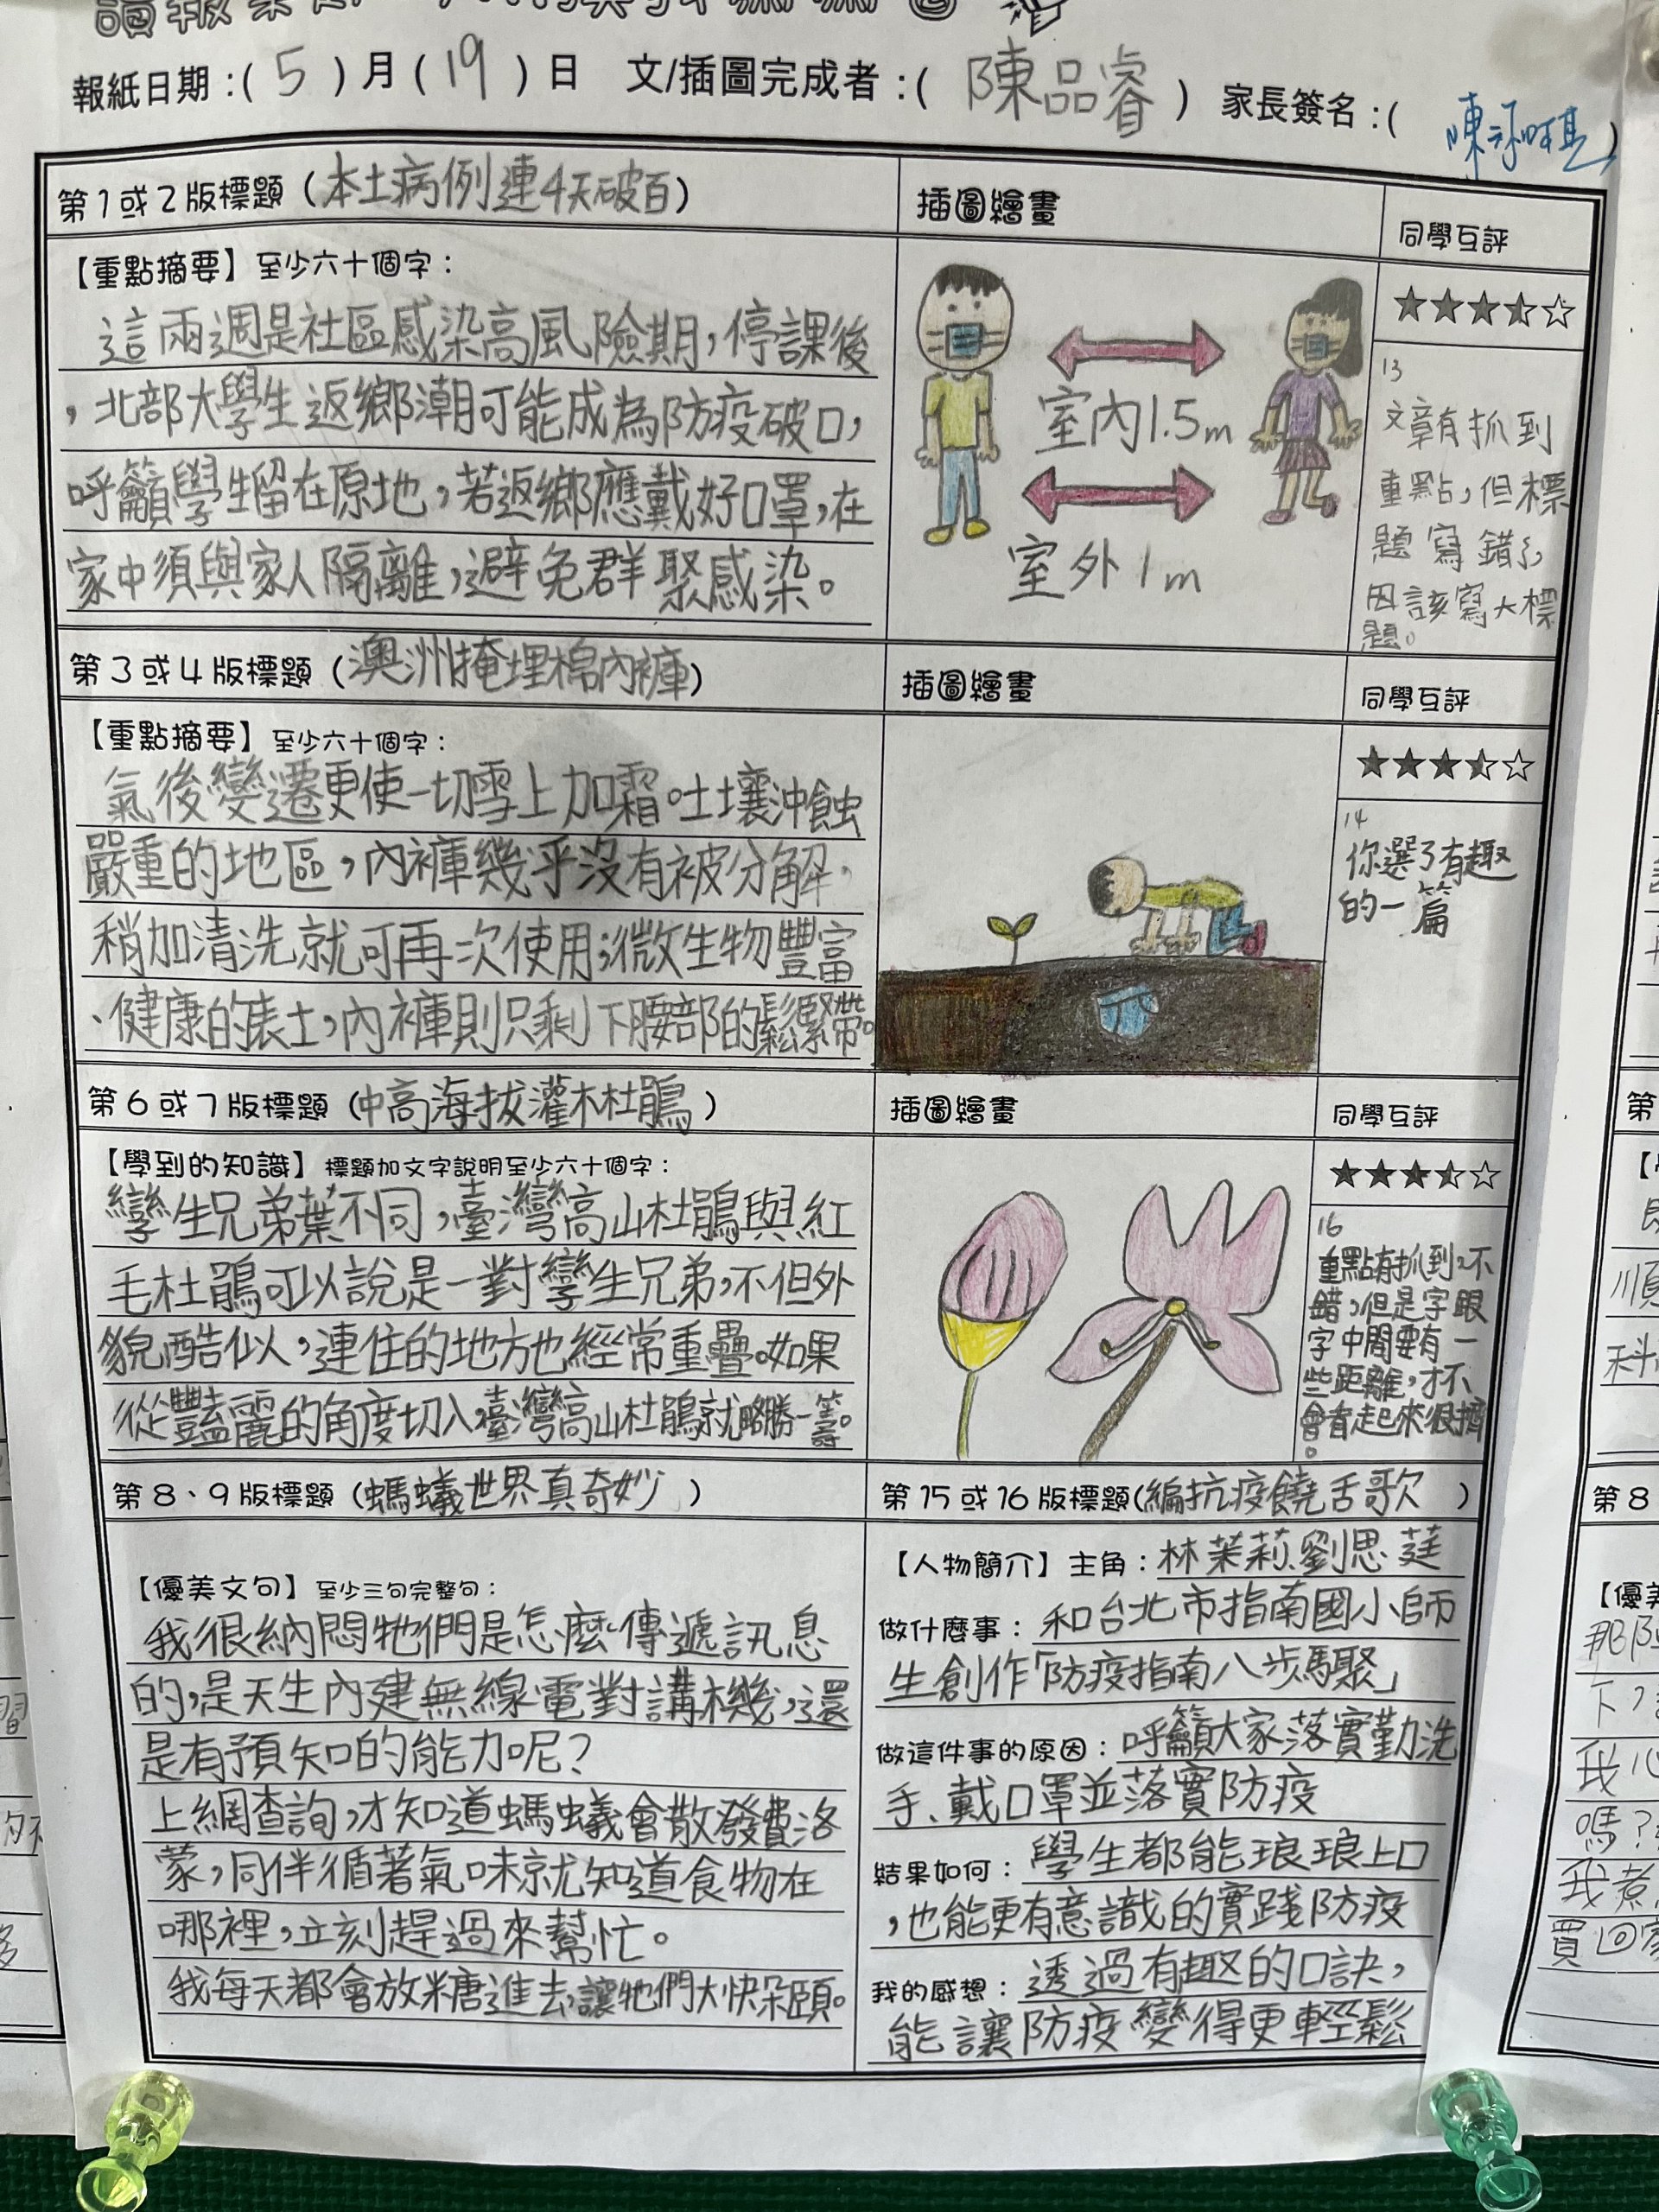 報紙日期：( 5 ) 月 ( 19 ) 日 文/插圖完成者：( 陳品睿 ) 家長簽名：( 陳 )
第1或2版標題 (本土病例連4天破百)
插圖繪畫
同學互評
【重點摘要】至少六十個字：
這兩週是社區感染高風險期，停課後
，北部大學生返鄉潮可能成為防疫破口，
呼籲學生留在原地，若返鄉應戴好口罩，在
家中須與家人隔離，避免群聚感染。
室內1.5m
室外1m
★★★★☆
13
文章有抓到
重點，但標
題寫錯了，
因該寫大標
題。
第3或4版標題 (澳洲掩埋棉內褲)
插圖繪畫
同學互評
【重點摘要】至少六十個字：
氣後變遷更使一切雪上加霜。吐壤沖蝕
嚴重的地區，內褲幾乎沒有被分解，
稍加清洗就可再次使用；微生物豐富
、健康的表土，內褲則只剩下腰部的鬆緊帶。
★★★★☆
14
你選了有趣
的一篇
第6或7版標題 (中高海拔灌木杜鵑)
插圖繪畫
同學互評
【學到的知識】標題加文字說明至少六十個字：
孿生兄弟葉不同，臺灣高山杜鵑與紅
毛杜鵑可以說是一對孿生兄弟，不但外
貌酷似，連住的地方也經常重疊。如果
從豔麗的角度切入，臺灣高山杜鵑就略勝一籌。
★★★★☆
16
重點有抓到，不
錯，但是字跟
字中間要有一
些距離，才不
會看起來很擠
。
第8、9版標題 (螞蟻世界真奇妙)
【優美文句】至少三句完整句：
我很納悶牠們是怎麼傳遞訊息
的，是天生內建無線電對講機，還
是有預知的能力呢？
上網查詢，才知道螞蟻會散發費洛
蒙，同伴循著氣味就知道食物在
哪裡，立刻趕過來幫忙。
我每天都會放糖進去，讓牠們大快朵頤。
第15或16版標題(編抗疫饒舌歌)
【人物簡介】主角：林茉莉、劉思莛
做什麼事：和台北市指南國小師
生創作「防疫指南八步驟」
做這件事的原因：呼籲大家落實勤洗
手、戴口罩並落實防疫
結果如何：學生都能琅琅上口
，也能更有意識的實踐防疫
我的感想：透過有趣的口訣，
能讓防疫變得更輕鬆